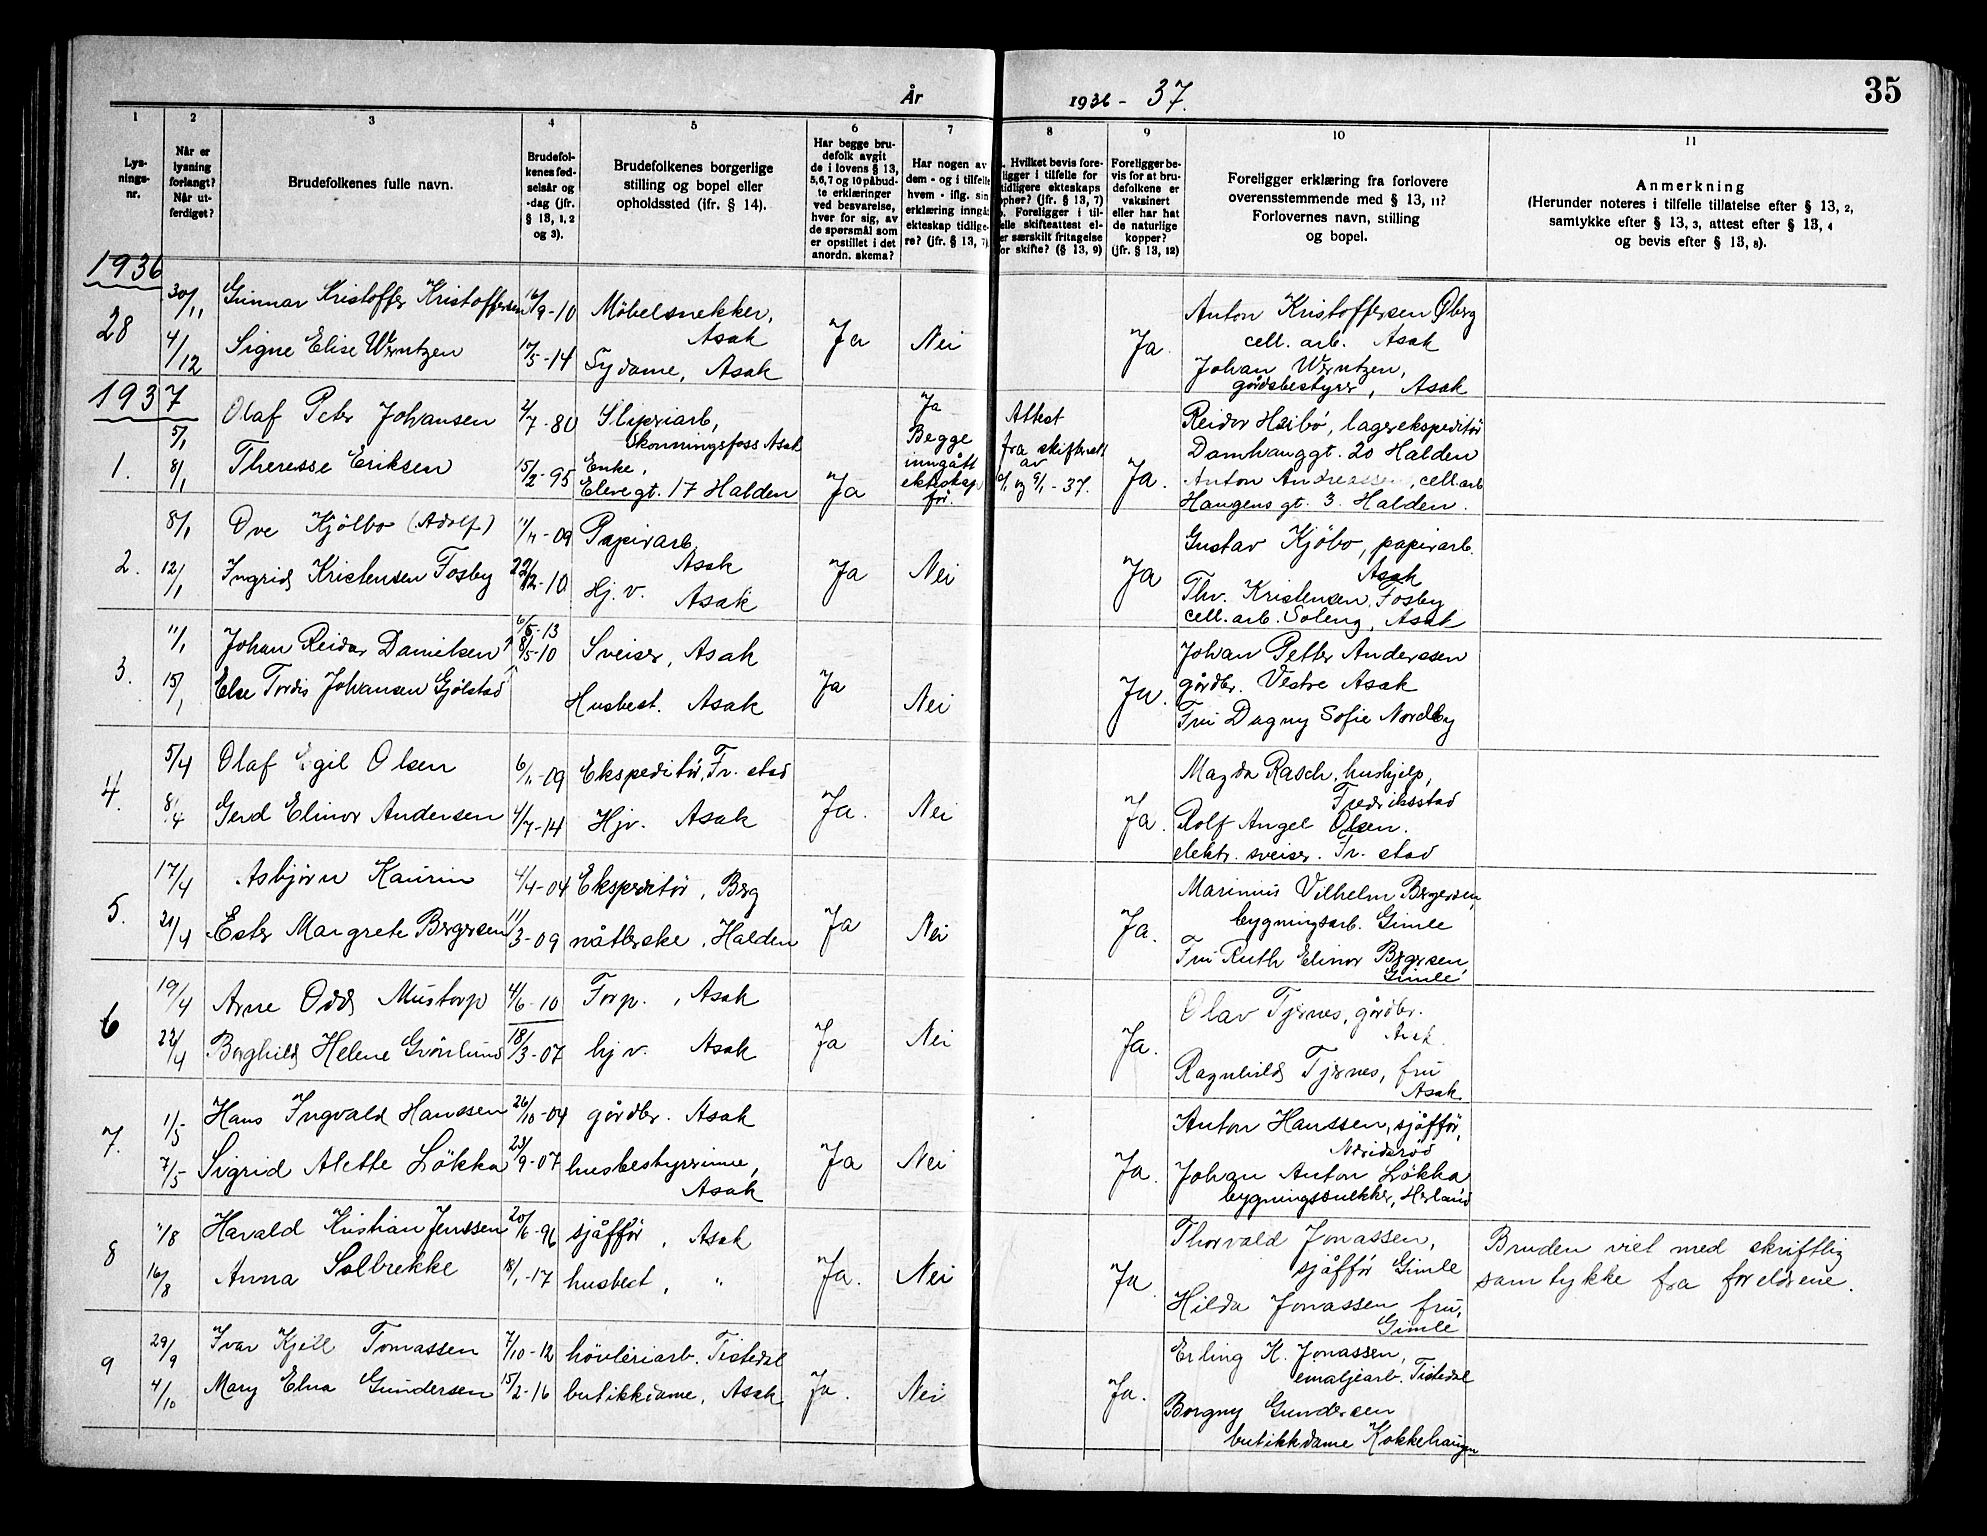 35
År 1936 - 37.
1 2 3 4 5 6 7 8 9 10 11
Lys-
nings-
nr.
Når er
lysning
forlangt?
Når ut-
ferdiget?
Brudefolkenes fulle navn.
Brudefol-
kenes fød-
selsår og
-dag (jfr.
§ 13, 1, 2
og 3).
Brudefolkenes borgerlige
stilling og bopel eller
opholdssted (ifr. § 14).
Har begge bru-
defolk avgit
de i lovens § 13,
5,6,7 og 10 påbud-
te erklæringer
ved besvarelse,
hver for sig, av
de spørsmål som
er opstillet i det
anordn. skema?
Har nogen av
dem - og i tilfelle
hvem - iflg. sin
erklæring inngåt
ekteskap tidlige-
re? (jfr. § 13, 7)
Hvilket bevis fore-
ligger i tilfelle for
tidligere ekteskaps
opher? (jfr. § 13, 7)
Foreligger i til-
elle skifteattest el-
er særskilt fritagelse
or skifte? (§ 13, 9)
Foreligger be-
vis for at bru-
defolkene er
vaksinert
eller har hat
de naturlige
kopper?
(jfr. § 13, 12)
Foreligger erklæring fra forlovere
overensstemmende med § 13, 11?
Forlovernes navn, stilling
og bopel.
Anmerkning
(Herunder noteres i tilfelle tillatelse efter § 13, 2,
samtykke efter § 13, 3, attest efter § 13, 4
og bevis efter § 13, 8).
1936
28
30/11
4/12
Gunnar Kristoffer Kristoffersen
Signe Elise Werntzen
16/9-10
17/5-14
Möbelsnekker,
Asak
Sydame, Asak
Ja
Nei
Ja.
Anton Kristoffersen Øberg
cell. arb. Asak
Johan Werntzen,
gårdsbestyrer, Asak
1937
1.
5/1
8/1
Olaf Peter Johansen
Theresse Eriksen
2/7-80
15/2-95
Sliperiarb,
Skonningsfoss Asak
Enke,
Elvegt. 17 Halden
Ja
Ja
Begge
inngått
ekteskap
før.
Attest
fra skifterett
av
og 6/1-37.
Ja.
Reidar Heibö, lagerekspeditör
Damhauggt. 20 Halden
Anton Andreassen, cell.arb
Haugens gt. 3. Halden.
2.
8/1
12/1
Ove Kjölbo (Adolf)
Ingrid Kristensen Fosby
11/11-09
22/12-10
Papirarb.
Asak
Hj. v. Asak
Ja
Nei
Ja
Gustav Kjöbo, papirarb.
Asak
Thv. Kristensen Fosby
cell. arb. Soleng, Asak
3.
11/1
15/1
Johan Reidar Danielsen
Else Tordis Johansen Gjølstad
6/5-13
8/5-10
Sveiser, Asak
Husbest. Asak
Ja
Nei
Ja.
Johan Petter Andersen
gårdbr. Vestre Asak
Fru Dagny Sofie Nordby
4.
5/4
8/4
Olaf Egil Olsen
Gerd Elinor Andersen
6/11-09
4/7-14
Ekspeditör, Fr. stad
Hjv. Asak
Ja.
Nei
Ja.
Magda Rasch, hushjelp,
Fredriksstad
Rolf Angel Olsen.
elektr. sveiser. Fr. stad
5.
17/4
21/4
Asbjørn Kaurin
Ester Margrete Bergersen
4/4-04
11/3-09
Ekspeditör, Berg
nåtlerske, Halden
Ja
Nei
Ja.
Marinius Vilhelm Bergersen,
bygningsarb. Gimle
Fru Ruth Elinor Bergersen,
Gimle
6
19/4
22/4
Arne Odd Mustorp
Borghild Helene Grönlund
4/6-10
18/3-07
Forp., Asak
hjv. Asak
Ja
Nei
Ja.
Olav Tjernes, gårdbr.
Asak.
Ragnhild Tjernes, fru
Asak.
7.
1/5
7/5
Hans Ingvald Hanssen
Sigrid Alette Løkka
26/10-04
23/9-07
gårdbr. Asak
husbestyrerinne,
Asak
Ja
Nei
Ja.
Anton Hanssen, sjåffør,
Johan Anton Løkka
bygningssnekker, Herland
8
11/8
16/8
Harald Kristian Jenssen
Anna Solbrekke
20/6-96
18/1-17
sjåffør, Asak
husbest, "
Ja.
Nei
Ja.
Thorvald Jonassen,
sjåffør Gimle
Hilda Jonassen fru,
Gimle
Bruden viet med skriftlig
samtykke fra foreldrene.
9
29/9
4/10
Ivar Kjell Tomassen
Mary Elna Gundersen
7/10-12
15/2-16
hövleriarb. Tistedal
butikkdame, Asak
Ja.
Nei
Ja.
Erling K. Jonassen,
emaljearb. Tistedal
Borgny Gundersen
butikkdame Kokkehaugen